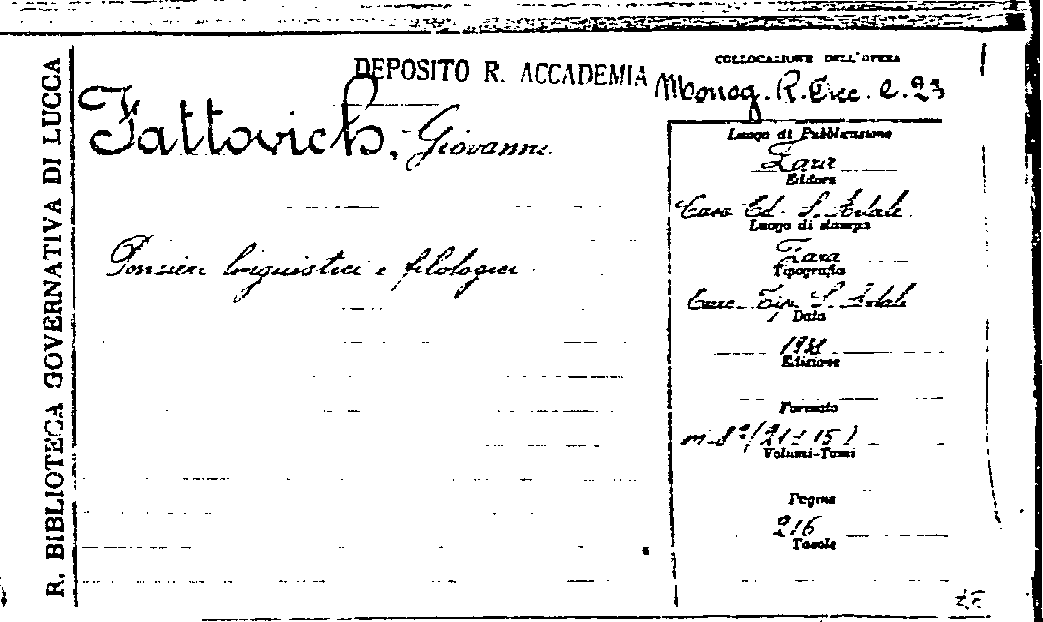 R. BIBLIOTECA GOVERNATIVA DI LUCCA
DEPOSITO R. ACCADEMIA
COLLOCAZIONE DELL'OPERA
Monog. R. Acc. C. 23
Fattovich, Giovanni
Pensieri linguistici e filologici
Luogo di Pubblicazione
Zara
Editore
Casa Ed. S.
Luogo di stampa
Zara
Tipografia
Tip. S.
Data
Edizione
Formato
in 8° (21 x 15)
Volumi-Tomi
Pagine
216
Tavole